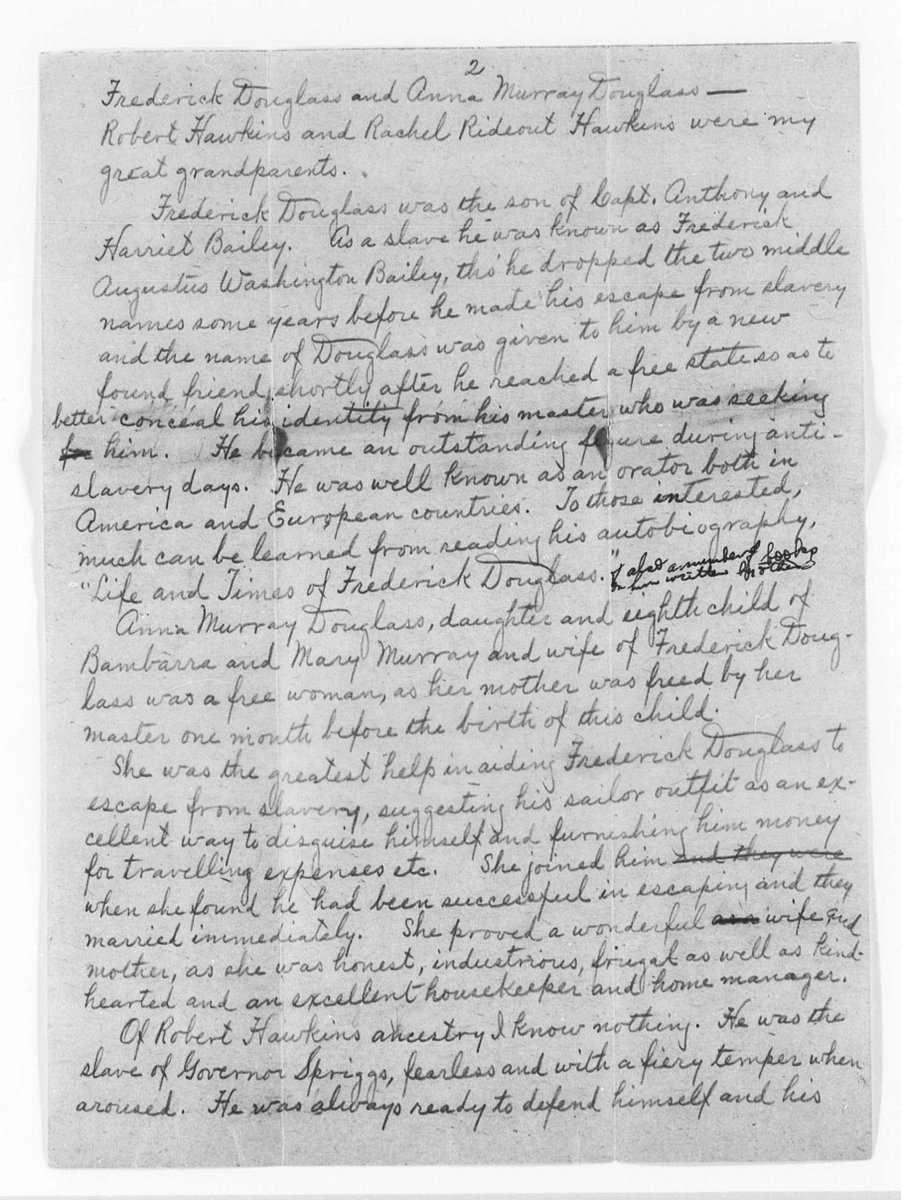 2
Frederick Douglass and Anna Murray Douglass —
Robert Hawkins and Rachel Rideout Hawkins were my
great grandparents.
Frederick Douglass was the son of Capt. Anthony and
Harriet Bailey. As a slave he was known as Frederick
Augustus Washington Bailey, tho' he dropped the two middle
names some years before he made his escape from slavery
and the name of Douglass was given to him by a new
found friend shortly after he reached a free state so as to
better conceal his identity from his master who was seeking
for him. He became an outstanding figure during anti-
slavery days. He was well known as an orator both in
America and European countries. To those interested,
much can be learned from reading his autobiography,
"Life and Times of Frederick Douglass." & also a number of books
on him written by others
Anna Murray Douglass, daughter and eighth child of
Bambarra and Mary Murray and wife of Frederick Doug-
lass was a free woman, as her mother was freed by her
master one month before the birth of this child.
She was the greatest help in aiding Frederick Douglass to
escape from slavery, suggesting his sailor outfit as an ex-
cellent way to disguise himself and furnishing him money
for travelling expenses etc. She joined him and they were
when she found he had been successful in escaping and they
married immediately. She proved a wonderful as a wife and
mother, as she was honest, industrious, frugal as well as kind-
hearted and an excellent housekeeper and home manager.
Of Robert Hawkins ancestry I know nothing. He was the
slave of Governor Spriggs, fearless and with a fiery temper when
aroused. He was always ready to defend himself and his